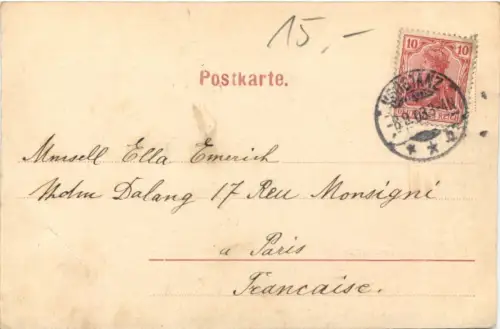 15,-
Postkarte.
10 10
KONSTANZ
Mmsell Ella Emerich
Dalang 17 Reu Monsigni
a Paris
Francaise.